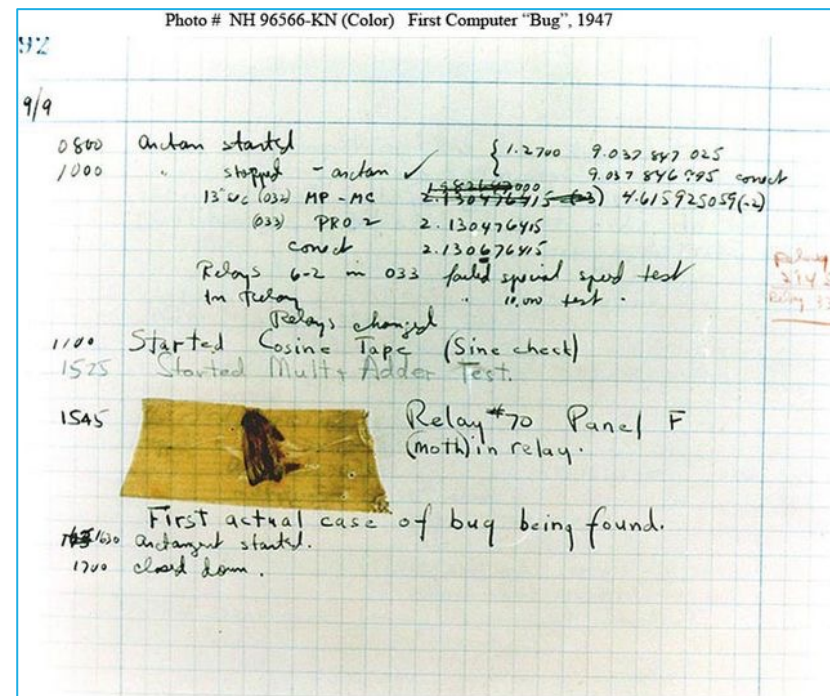 Photo # NH 96566-KN (Color) First Computer “Bug”, 1947
92
9/9
0800 antan started
1000 " stopped - antan ✓ { 1.2700 9.037 847 025
9.037 846 995 conect
13"uc (032) MP - MC 1.982647000 2.130476415 (-3) 4.615925059(-2)
(033) PRO 2 2.130476415
conect 2.130676415
Relays 6-2 in 033 failed special speed test
In Relay " 10,000 test.
Relays changed
1100 Started Cosine Tape (Sine check)
1525 Started Mult + Adder Test.
1545 Relay #70 Panel F
(moth) in relay.
First actual case of bug being found.
1630 antangent started.
1700 closed down.